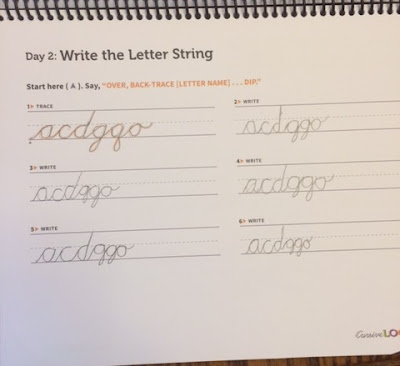 Day 2: Write the Letter String
Start here ( A ). Say, “OVER, BACK-TRACE [LETTER NAME] . . . DIP.”
1> TRACE
acdgqo
2> WRITE
acdgqo
3> WRITE
acdgqo
4> WRITE
acdgqo
5> WRITE
acdgqo
6> WRITE
acdgqo